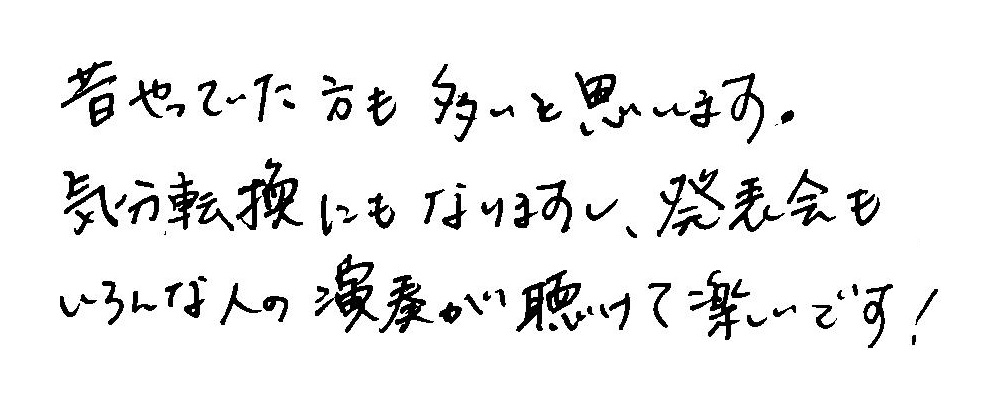 昔やっていた方も多いと思います。
気分転換にもなりますし、発表会も
いろんな人の演奏が聴けて楽しいです！